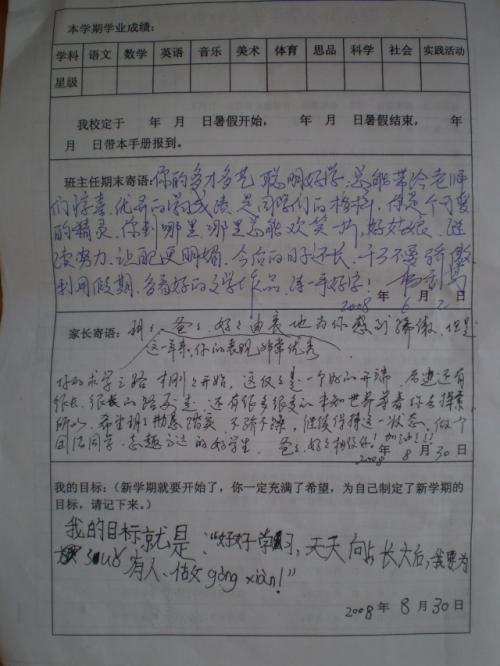 本学期学业成绩:
学科 语文 数学 英语 音乐 美术 体育 思品 科学 社会 实践活动
星级
我校定于 年 月 日暑假开始, 年 月 日暑假结束, 年
月 日带本手册报到。
班主任期末寄语:你的多才多艺、聪明好学,总能带给老师
们惊喜,优异的学习成绩是同学们的榜样,像是个可爱
的精灵,你到哪里哪里总能欢笑一片,好好
努力,让 更明媚。今后的日子还长,千万不要骄傲
利用假期,多看好的文学作品,练一手好字!
2008 年 6 月 日
家长寄语: 爸爸、妈妈由衷地为你感到骄傲,但是
这一年来,你的表现非常优秀
你的求学之路才刚刚开始,这仅仅是一个好的开端,后边还有
很长、很长的路要走,还有很多很多的未知世界等着你去探索
所以,希望 踏实、不骄不躁,继续保持这一状态,做个
团结同学、 的好学生。爸爸、妈妈相信你!加油!!!
2008 年 8 月 30 日
我的目标:(新学期就要开始了,你一定充满了希望,为自己制定了新学期的
目标,请记下来。)
我的目标就是:“好好学习,天天向上,长大后,我要为
suǒ 有人、做 gòng xiàn!”
2008 年 8 月 30 日